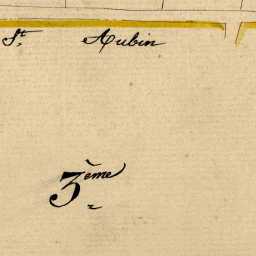 St. Aubin
3ème